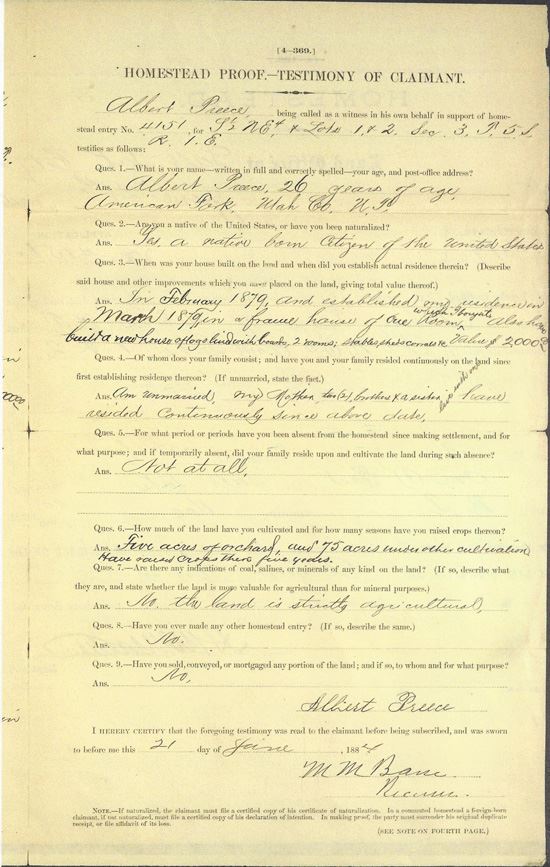 [4—369.]
HOMESTEAD PROOF.—TESTIMONY OF CLAIMANT.
Albert Preece, being called as a witness in his own behalf in support of home-
stead entry No. 4151, for S½ NE¼ & Lots 1 & 2, Sec. 3, T. 5 S.
testifies as follows: R. 1. E.
Ques. 1.—What is your name—written in full and correctly spelled—your age, and post-office address?
Ans. Albert Preece, 26 years of age,
American Fork, Utah Co, U.T.
Ques. 2.—Are you a native of the United States, or have you been naturalized?
Ans. Yes, a native born Citizen of the United States
Ques. 3.—When was your house built on the land and when did you establish actual residence therein? (Describe
said house and other improvements which you have placed on the land, giving total value thereof.)
Ans. In February 1879, and established my residence in
March 1879 in a frame house of One Room, which I bought Also have
built a new house of logs lined with boards, 2 rooms; stables sheds corrals &c Value $2000.00
Ques. 4.—Of whom does your family consist; and have you and your family resided continuously on the land since
first establishing residence therein? (If unmarried, state the fact.)
Ans. Am unmarried, my Mother, two (2) brothers & a sister live with me have
resided Continuously since above date,
Ques. 5.—For what period or periods have you been absent from the homestead since making settlement, and for
what purpose; and if temporarily absent, did your family reside upon and cultivate the land during such absence?
Ans. Not at all,
Ques. 6.—How much of the land have you cultivated and for how many seasons have you raised crops thereon?
Ans. Five acres of orchard, and 75 acres under other cultivation
Have raised crops there five years.
Ques. 7.—Are there any indications of coal, salines, or minerals of any kind on the land? (If so, describe what
they are, and state whether the land is more valuable for agricultural than for mineral purposes.)
Ans. No, the land is strictly agricultural,
Ques. 8.—Have you ever made any other homestead entry? (If so, describe the same.)
Ans. No.
Ques. 9.—Have you sold, conveyed, or mortgaged any portion of the land; and if so, to whom and for what purpose?
Ans. No,
Albert Preece
I HEREBY CERTIFY that the foregoing testimony was read to the claimant before being subscribed, and was sworn
to before me this 21 day of June, 1884
M M Bane
NOTE.—If naturalized, the claimant must file a certified copy of his certificate of naturalization. In a commuted homestead a foreign-born
claimant, if not naturalized, must file a certified copy of his declaration of intention. In making proof, the party must surrender his original duplicate
receipt, or file affidavit of its loss.
(SEE NOTE ON FOURTH PAGE.)